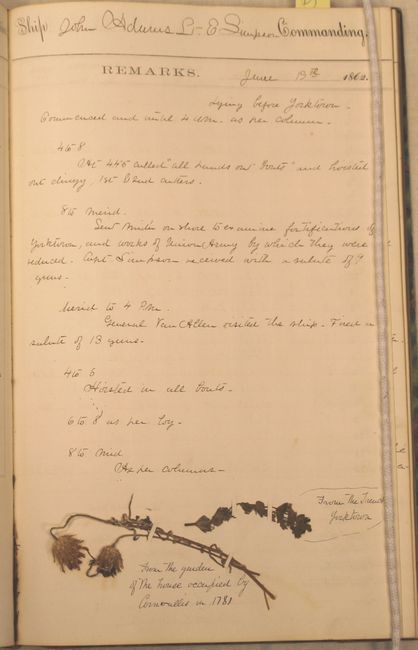 Ship John Adams Lt E Simpson Commanding.
REMARKS. June 13th 1862.
Lying before Yorktown.
Commenced and until 4 AM. as per column.
4 to 8
At 4.45 called "all hands out boats" and hoisted
out dingy, 1st & 2nd cutters.
8 to merid.
Sent Mids on shore to examine fortifications of
Yorktown, and works of Union Army by which they were
reduced. Capt Simpson received with a salute of 9
guns.
Merid to 4 PM.
General Van Allen visited the ship. Fired a
salute of 13 guns.
4 to 6
Hoisted in all boats.
6 to 8 as per log.
8 to Mid
As per columns.
From the Trench
Yorktown
from the garden
of The house occupied by
Cornwallis in 1781